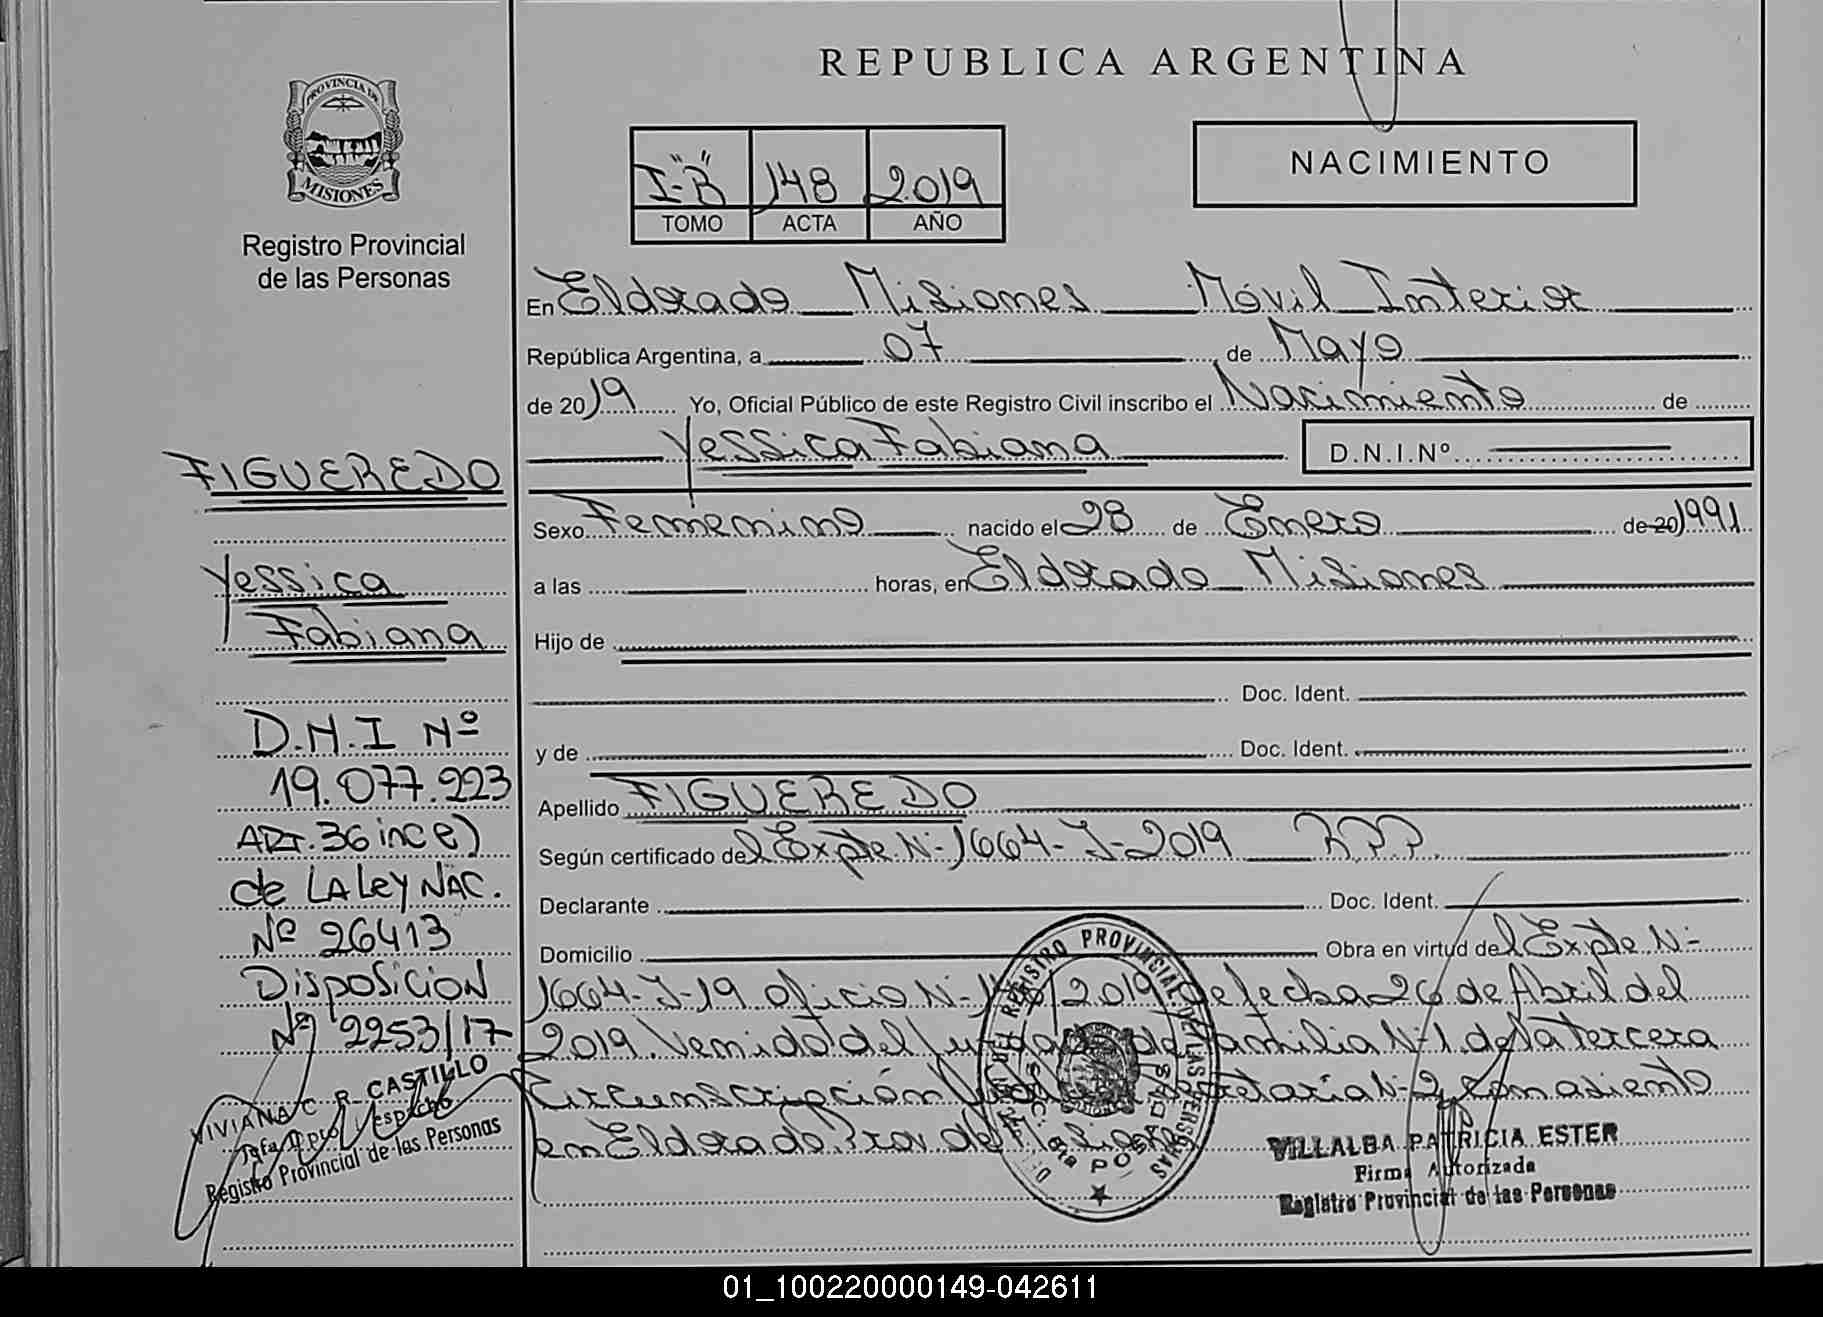 REPUBLICA ARGENTINA
PROVINCIA DE
MISIONES
Registro Provincial
de las Personas
I-"B" 148 2019
TOMO ACTA AÑO
NACIMIENTO
En Eldorado Misiones Móvil Interior
República Argentina, a 07 de Mayo
de 2019 Yo, Oficial Público de este Registro Civil inscribo el Nacimiento de
Yessica Fabiana D.N.I.Nº
Sexo Femenino nacido el 28 de Enero de 20 1991
a las horas, en Eldorado Misiones
Hijo de
Doc. Ident.
y de Doc. Ident.
Apellido FIGUEREDO
Según certificado del Expte. N- 1664-J-2019 R.P.P.
Declarante Doc. Ident.
Domicilio Obra en virtud del Expte. N-
1664-J-19 Oficio N- /2019 de fecha 26 de Abril del
2019. Venido del Juzgado de Familia N-1. de la Tercera
Circunscripción Secretaría N-2, con asiento
en Eldorado Prov. de Misiones
VILLALBA PATRICIA ESTER
Firma Autorizada
Registro Provincial de las Personas
REGISTRO PROVINCIAL DE LAS PERSONAS
POSADAS
FIGUEREDO
Yessica
Fabiana
D.N.I Nº
19.077.223
ART. 36 inc e)
de LA Ley NAC.
Nº 26413
Disposicion
Nº 2253/17
VIVIANA C. R. CASTILLO
Jefa Dpto. Despacho
Registro Provincial de las Personas
01_100220000149-042611